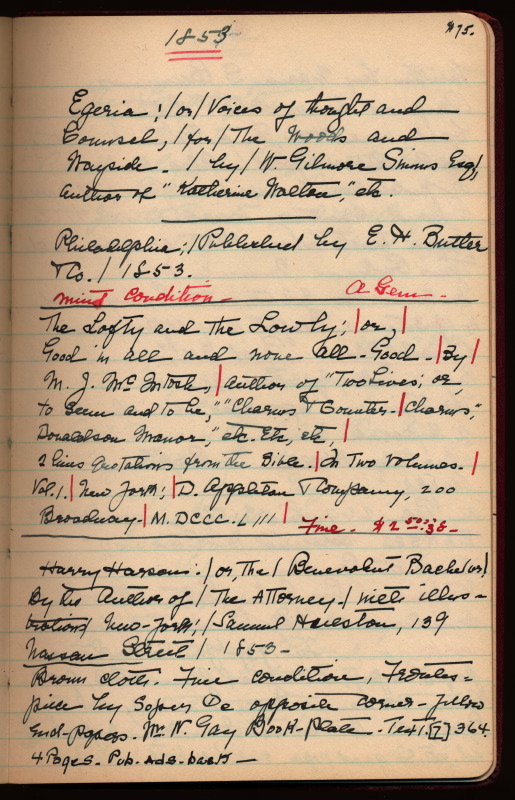 #75.
1853
Egeria; /or/ Voices of thought and
Counsel, /for/ The Woods and
Wayside. / by / W. Gilmore Simms Esq/
author of "Katherine Walton," etc.
Philadelphia; / Published by E. H. Butler
& Co. / 1853.
mint condition - A Gem -
The Lofty and the Lowly; | or, |
Good in all and none all-Good. | By |
M. J. McIntosh, | author of "Two Lives; or,
to seem and to be," "Charms & Counter-| Charms,"
Donaldson Manor," etc. etc, etc, |
2 lines quotations from the Bible. | In Two Volumes. |
Vol. 1. | New York; | D. Appleton & Company, 200
Broadway. | M.DCCC.LIII | Fine. $2
Harry Harson: / or, The / Benevolent Bachelor/
By the Author of / The Attorney. / with illus-
trations/ New-York; / Samuel Hueston, 139
Nassau Street / 1853 -
Brown cloth. Fine condition, Frontis-
piece by opposite corner - yellow
end-papers. W. Gay Book-Plate. Text. [7] 364.
4 Pages. Pub. Ads. back -